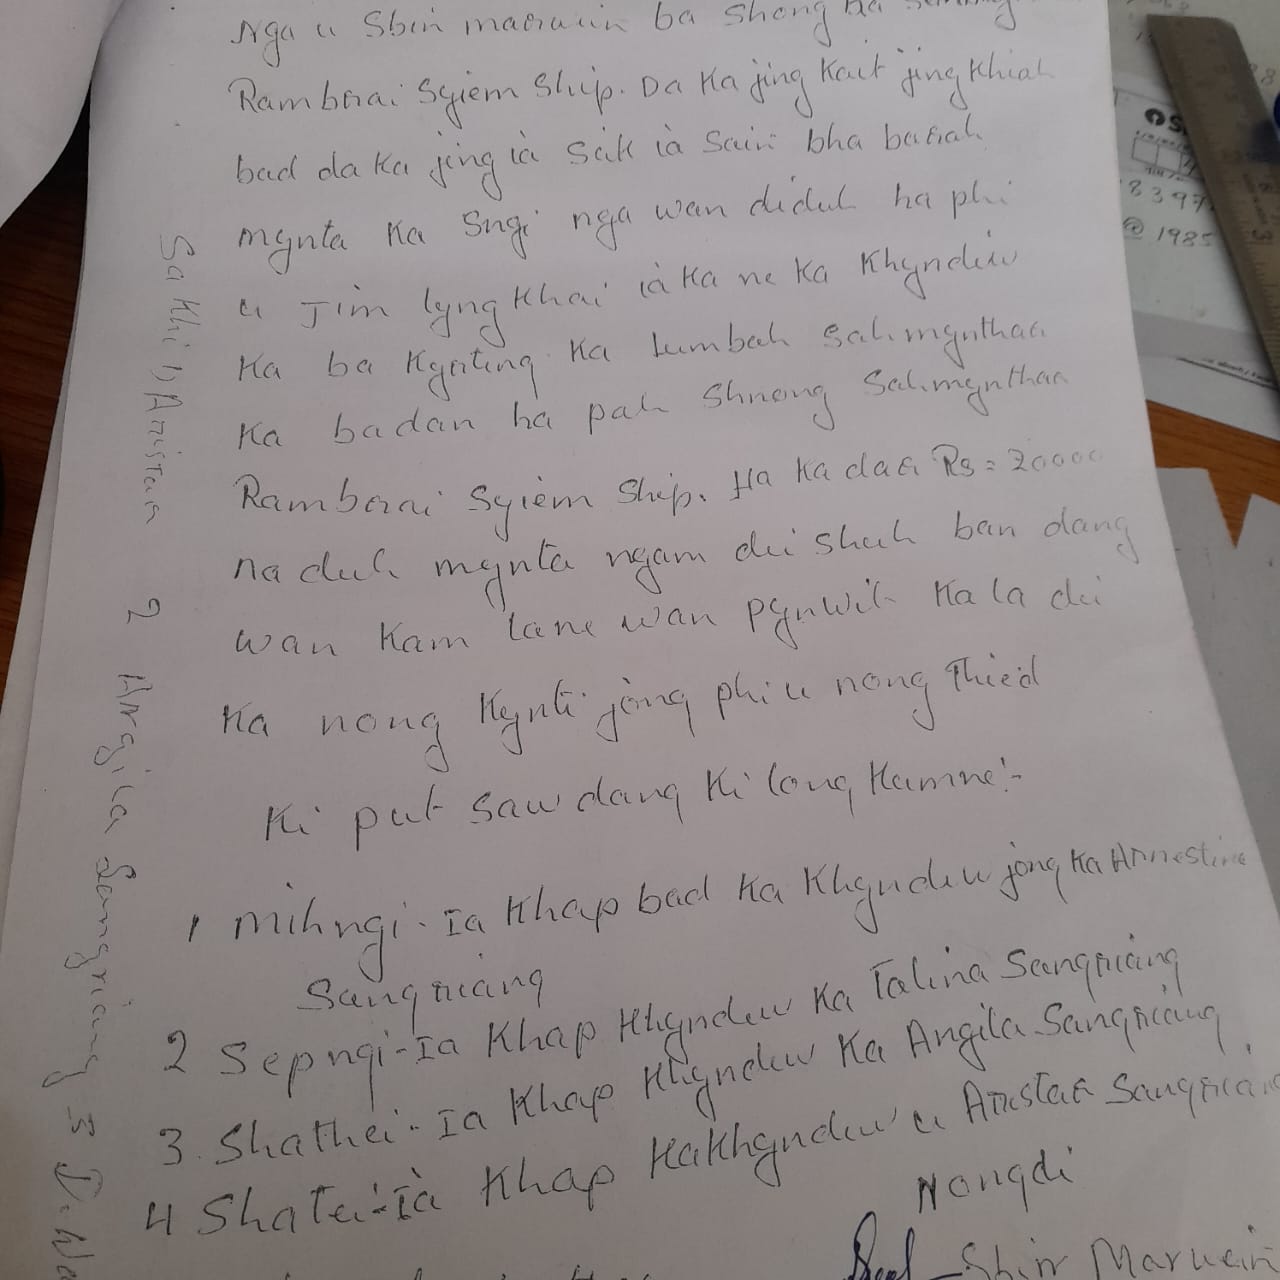 Nga u Sbin marwein ba shong ha
Rambrai Syiem Ship. Da Ka jing Kait jing Khiah
bad da Ka jing ïa sak ïa sain bha barah
mynta Ka Sngi nga wan diduh ha phi
u Jim lyngkhai ïa Ka ne Ka Khyndew
Ka ba Kyrting Ka Lumbah Salmynthar
Ka badan ha pah Shnong Salmynthar
Rambrai Syiem Ship. Ha Ka dar Rs = 20000
naduh mynta ngam dei shuh ban dang
wan Kam lane wan pynwit Ka la dei
Ka nong Kynti jong phi u nong Thied
Ki put saw dang Ki long Kumne:-
1 mihngi - Ia Khap bad Ka Khyndew jong Ka Arnestine
Sangriang
2 Sepngi - Ia Khap Khyndew Ka Talina Sangriang
3. Shathei - Ia Khap Khyndew Ka Angila Sangriang
4 Shatei - Ia Khap Ka Khyndew u Aristar Sangriang
Nongdi
Sbin Marwein
Sakhi 1) Aristar 2 Angila Sangriang 3
8397
@ 1985